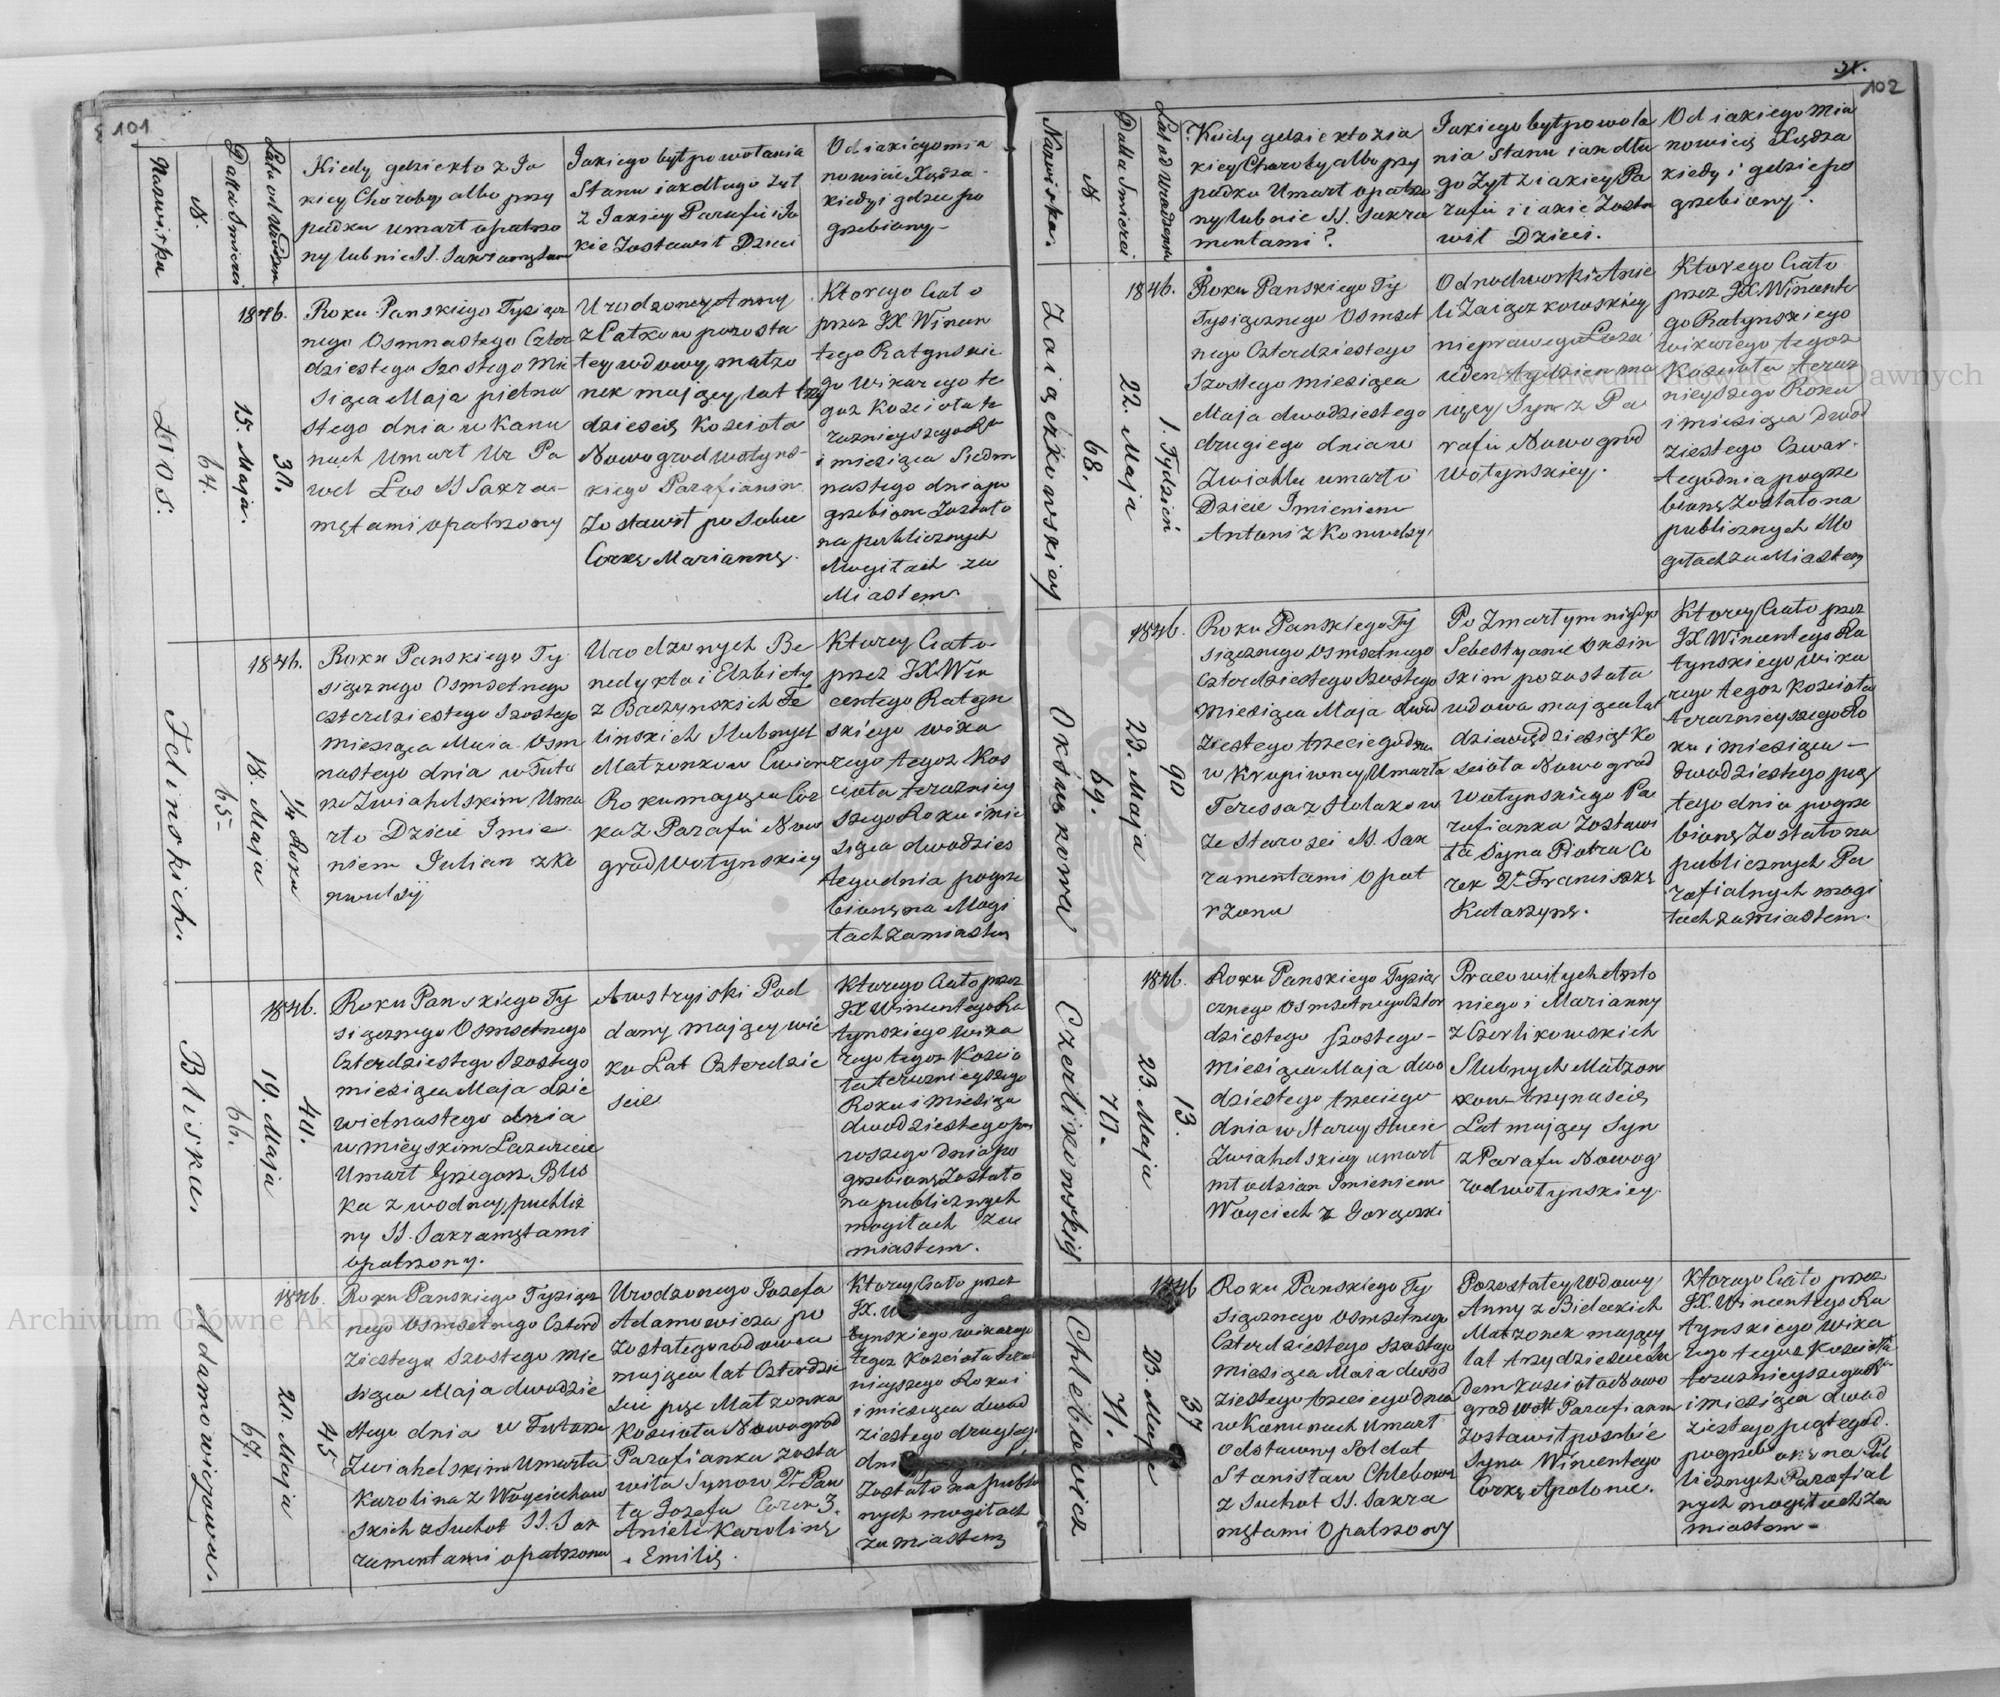 101
Nazwiska
N.
Datta Smierci
Lata od Urodzen
Kiedy gdzie kto z Ja
kiey Choroby albo przy
padku umarł opatrzo
ny lub nie SS. Sakramętam
Jakiego był powołania
Stanu i jak długo żył
z Jakiey Parafii i Ja
kie Zostawił Dzieci
Od iakiego mia
nowicie Xiędza
kiedy i gdzie po
grzebiony
Łos.
64.
1846.
15. Maja.
30.
Roku Panskiego Tysiącz
nego Osmnastego Czter
dziestego Szostego Mie
siąca Maja piętna
stego dnia w Kanu
nach Umarł Ur Pa
weł Łos SS Sakra
mętami opatrzony
Urodzoney Anny
z Łatkow pozosta
łey wdowy małżo
nek maiący lat trzy
dziescię Koscioła
Nowogrodwołyns
kiego Parafianin
Zostawił po Sobie
Corkę Mariannę.
Ktorego Ciało
przez JX Wincen
tego Ratynskie
go Wikarego te
goz Koscioła te
raznieyszego Ro
i miesiąca Siedm
nastego dnia po
grzebione Zostało
na publicznych
Mogiłach za
Miastem
Felinskich.
65
1846.
18. Maja
1/4 Roku
Roku Panskiego Ty
siącznego Osmsetnego
czterdziestego Szostego
miesiąca Maia Osm
nastego dnia w Futo
rze Zwiahelskim Uma
rło Dziecie Imie
niem Julian z Ko
nwulsij
Urodzonych Be
nedykta i Elzbiety
z Baczynskich Fe
linskich Slubnych
Małzonkow Cwierc
Roku maiąca Cor
ka z Parafii Now
grodwołynskiey
Ktorey Ciało
przez JX Win
centego Ratyn
skiego wika
rego tegoz Kos
cioła terazniey
szego Roku i mie
siąca dwudzies
tego dnia pogrze
bionę na Mogi
łach za miastem
Bliska.
66.
1846.
19. Maja
40.
Roku Panskiego Ty
siącznego Osmsetnego
Czterdziestego Szostego
miesiąca Maja dzie
wietnastego dnia
w mieyskim Lazurecie
Umarł Grzegorz Blis
ka z wodney puchliz
ny SS. Sakramętami
opatrzony.
Awstryjski Pod
dany maiący wie
ku Lat Czterdzie
scie
Ktorego Ciało przez
JX Wincentego Ra
tynskiego wika
rego tegoz Koscio
ła teraznieyszego
Roku i miesiąca
dwudziestego pier
wszego dnia po
grzebionę Zostało
na publicznych
mogiłach za
miastem.
Adamowiczowa.
67.
1846.
20. Maja
45
Roku Panskiego Tysiącz
nego Osmsetnego Czterd
ziestego Szostego mie
siąca Maja dwudzie
stego dnia w Futorze
Zwiahelskim Umarła
Karolina z Woyciechow
skich z Suchot SS. Sak
ramentami opatrzona
Urodzonego Jozefa
Adamowicza po
zostałego wdowca
maiąca lat Czterdzie
scie pięc Małzonka
Kosciola Nowogrod
Parafianka zosta
wiła Synow 2ch Paw
ła Jozefa Corek 3.
Anielę Karolinę
i Emilię.
Ktorey Ciało przez
JX. W
tynskiego wikarego
tegoz Kosciola teraz
nieyszego Roku i
i miesiąca dwud
ziestego drugiego
dni
Zostało na publi
nych mogiłach
za miastem
102
Nazwiska.
N
Datta Smierci
Lat od Urodzenia
Kiedy gdzie kto z Ja
kiey Choroby albo przy
padku Umarł opatrzo
ny lub nie SS. Sakra
mentami?
Jakiego był powoła
nia Stanu i ak dłu
go Zył z iakiey Pa
rafii i iakie Zosta
wił Dzieci.
Od iakiego mia
nowicię Xiędza
kiedy i gdzie po
grzebiony?
Zaiączkowskiey
68.
1846.
22. Maja
1. Tydzien
Roku Panskiego Ty
Tysiącznego Osmset
nego Czterdziestego
Szostego miesiąca
Maja dwudziestego
drugiego dnia w
Zwiahlu umarło
Dziecie Imieniem
Antoni z Konwulsy,
Odnodworki Anie
li Zaiączkowskiey
nieprawego Łoza
ieden tydzien ma
iący Syn z Pa
rafii Nowogrod
Wołynskiey.
Ktorego Ciało
przez JX. Wincente
go Ratynskiego
wikarego tegoz
Kosciola teraz
nieyszego Roku
i miesiąca Dwud
ziestego Czwar
tego dnia pogrze
bionę Zostało na
publicznych Mo
giłach za Miastem
Oksinskowa
69.
1846.
23. Maja
90
Roku Panskiego Ty
siącznego Osmsetnego
Czterdziestego Szostego
miesiąca Maja dwud
ziestego trzeciego dnia
w Krupiwney Umarła
Teressa z Stolakow
ze Starosci SS. Sak
ramentami Opat
rzona
Po Zmarłym niegdys
Sebestyanie Oksin
skim pozostała
wdowa maiąca lat
dziewędziesiąt Ko
sciola Nowogrod
Wołynskiego Pa
rafianka Zostawi
ła Syna Piotra Co
rek 2ch Franciszkę
Katarzynę.
Ktorey Ciało przez
JX Wincentego Ra
tynskiego wika
rego tegoz Kosciola
teraznieyszego Ro
ku i miesiąca
dwudziestego pią
tego dnia pogrze
bionę Zostało na
publicznych Pa
rafialnych mogi
łach za miastem.
Czerlikowskij
70.
1846.
23. Maja
13.
Roku Panskiego Tysią
cznego Osmsetnego Czter
dziestego Szostego
miesiąca Maja dwu
dziestego trzeciego
dnia w Starey Hucie
Zwiahelskiey umarł
młodzian Imieniem
Woyciech z Gorączki
Pracowitych Anto
niego i Marianny
z Czerlikowskich
Slubnych Małzon
kow trzynascie
Lat maiący Syn
z Parafii Nowog
rodwołynskiey.
Chlebowicz
71.
1846
23. Maja
37
Roku Panskiego Ty
siącznego Osmsetnego
Czterdziestego szostego
miesiąca Maia dwud
ziestego trzeciego dnia
w Kanunach Umarł
Odstawny Soldat
Stanisław Chlebowicz
z Suchot SS. Sakra
mętami Opatrzony
Pozostałey Wdowy
Anny z Bieleckich
Małzonek maiący
lat trzydziescie sie
dem Kosciola Nowo
grod Woł Parafianin
zostawił po sobie
Syna Wincentego
Corkę Apolonie.
Ktorego Ciało przez
JX. Wincentego Ra
tynskiego wika
rego tegoz Kosciola
teraznieyszego Ro
i miesiąca dwud
ziestego piątego d.
pogrzebionę na Pub
licznych Parafial
nych mogiłach za
miastem
Archiwum Główne Akt Dawnych
Archiwum Główne Akt Dawnych